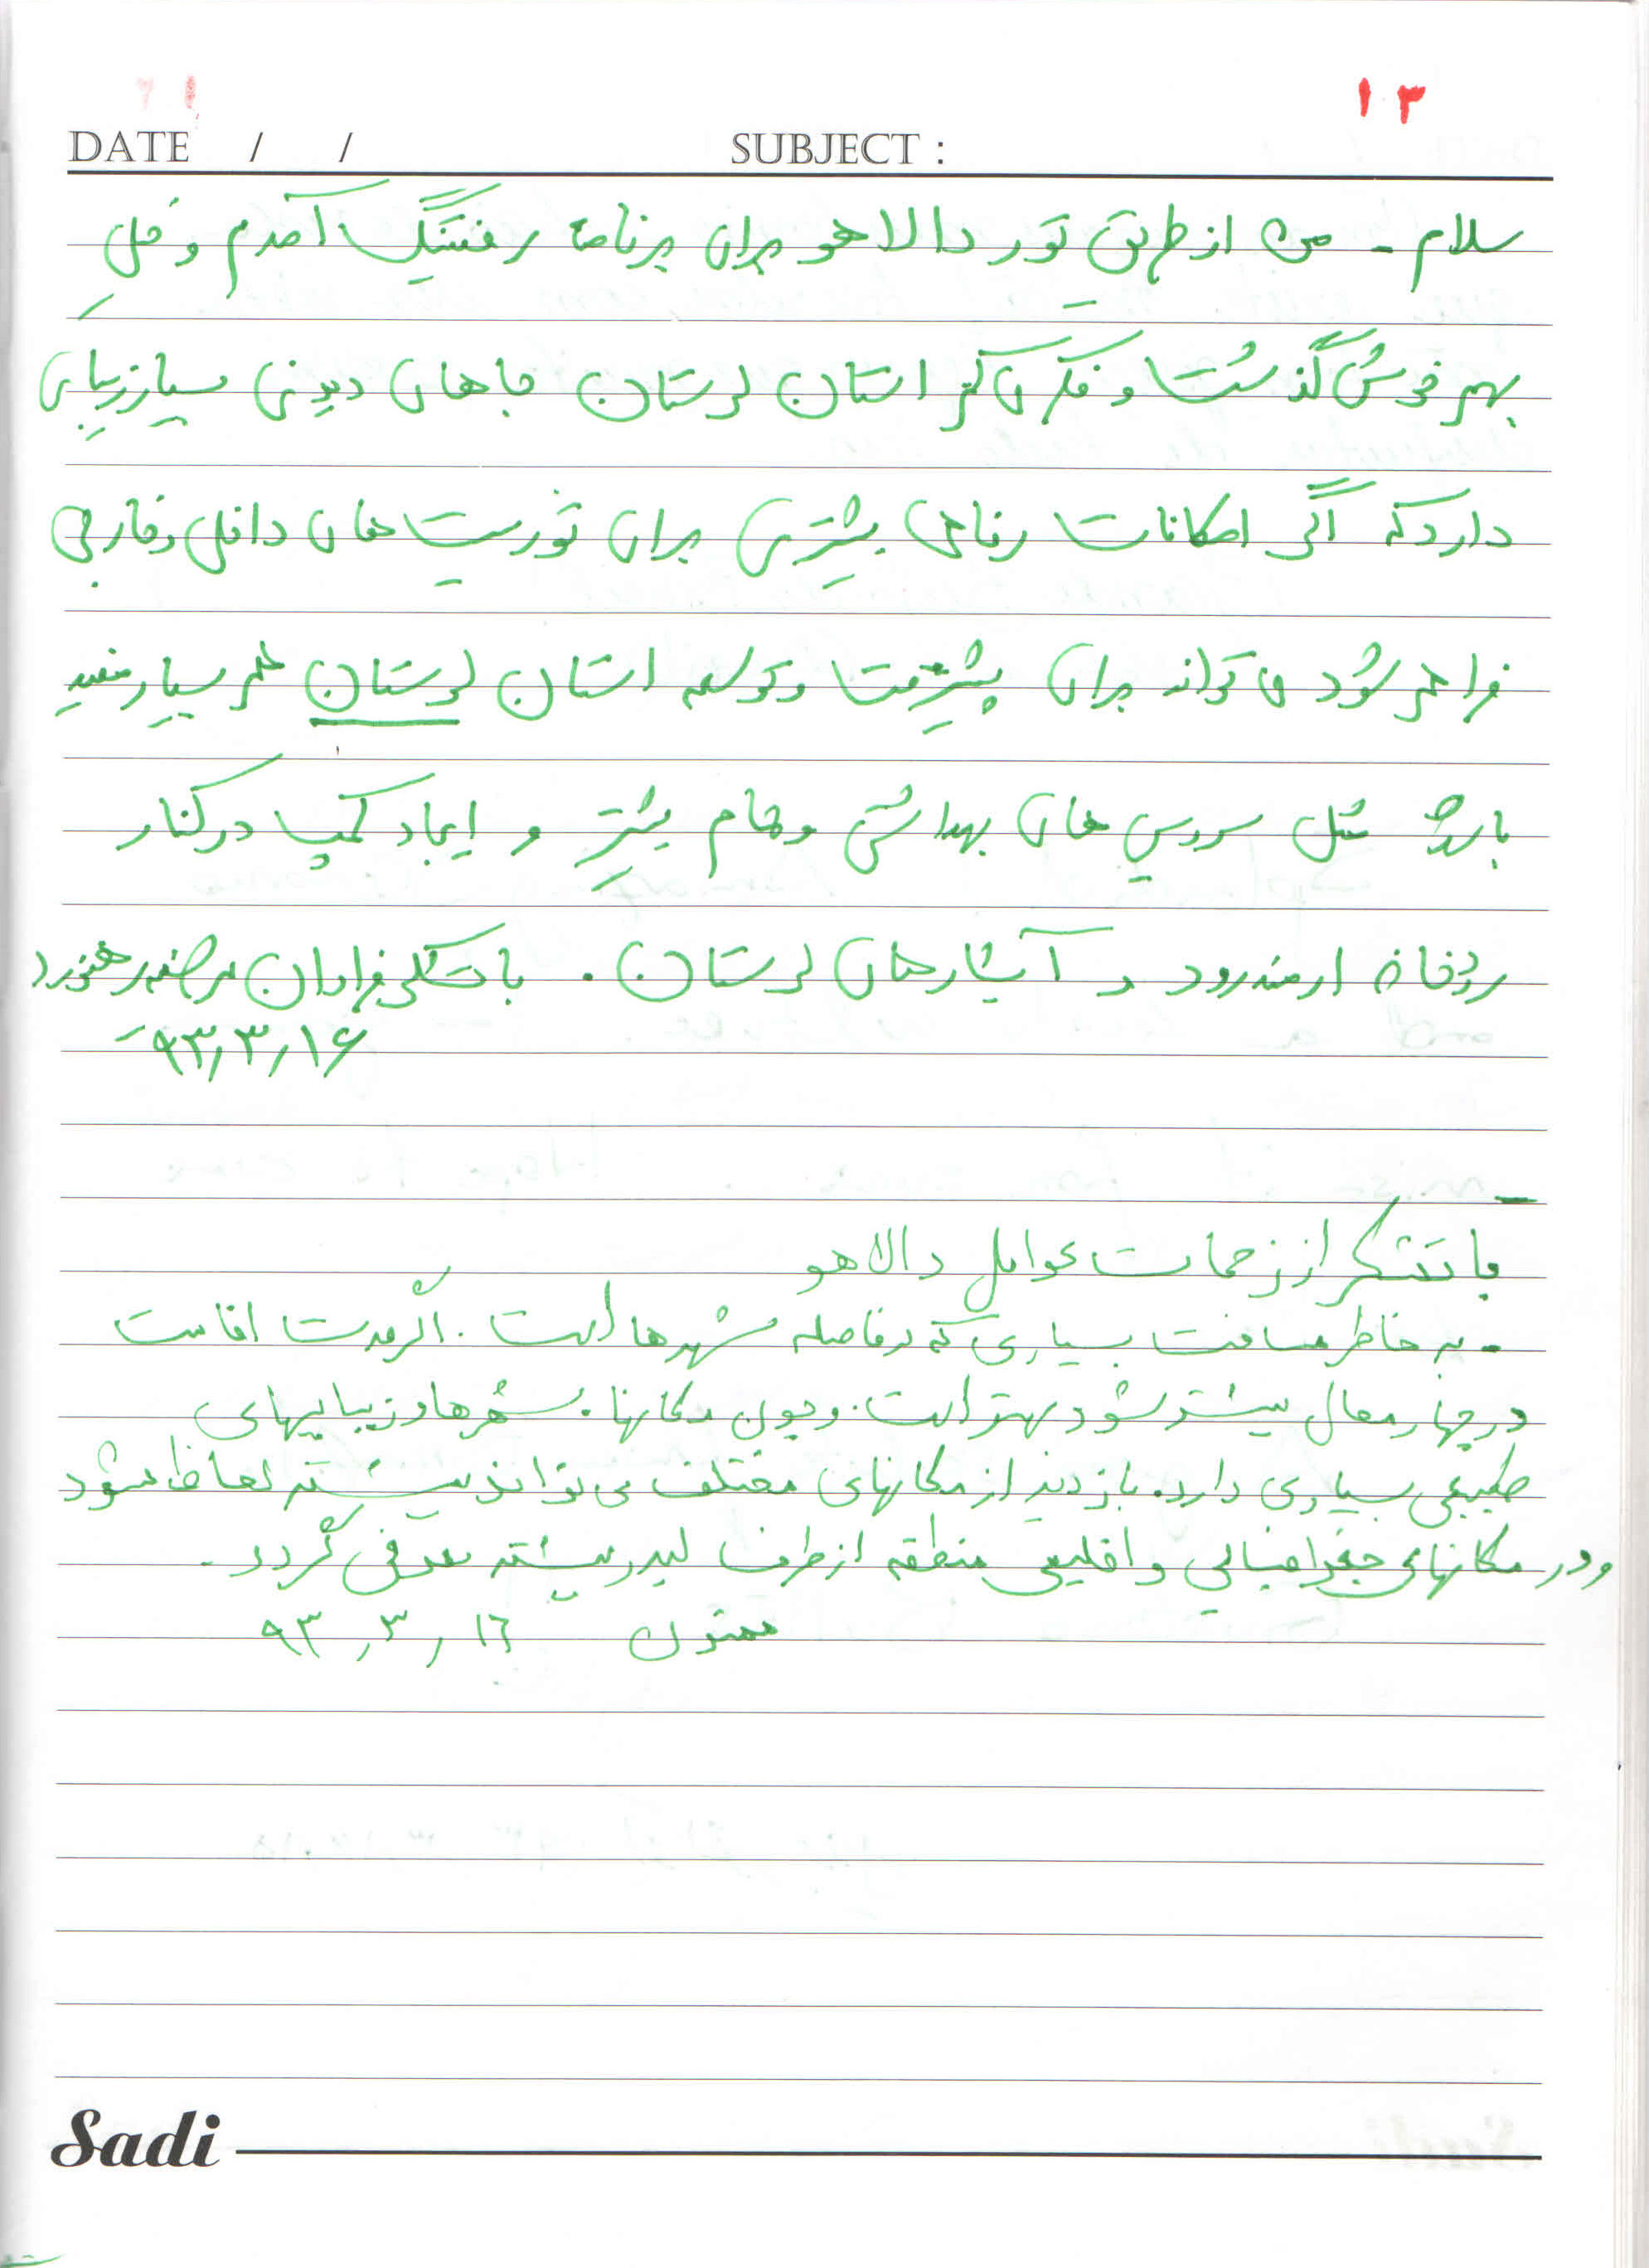 ۱۳
DATE / / SUBJECT :
سلام - من از طریق تور دالاهو برای برنامه رفتینگ آمدم و خیلی
بهم خوش گذشت و فکر می کنم استان لرستان جاهای دیدنی بسیار زیبای
دارد که اگر امکانات رفاهی بیشتری برای توریست های داخلی و خارجی
فراهم شود می تواند برای پیشرفت و توسعه استان لرستان هم بسیار مفید
باشد مثل سرویس های بهداشتی و حمام بیشتر و ایجاد کمپ در کنار
رودخانه ارمندرود و آبشارهای لرستان . با تشکر فراوان
۹۳/۳/۱۶
با تشکر از زحمات عوامل دالاهو
- به خاطر مسافت بسیاری که در فاصله شهرها است . اگر مدت اقامت
در چهار محال بیشتر شود بهتر است . و چون مکانها . شهرها و زیباییهای
طبیعی بسیاری دارد . بازدید از مکانهای مختلف می تواند بیشتر لحاظ شود
و در مکانهای جغرافیایی و اقلیمی منطقه از طرف لیدر بیشتر معرفی گردد .
ممنون ۹۳/۳/۱۶
Sadi